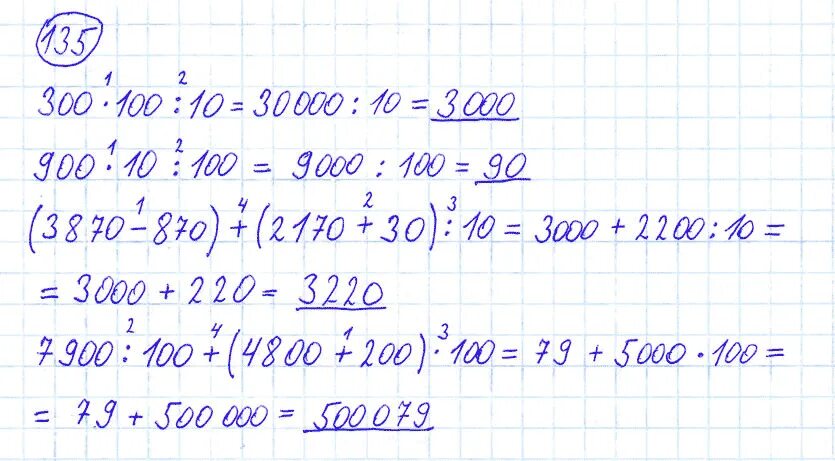 135
300 ·¹ 100 :² 10 = 30000 : 10 = 3000
900 ·¹ 10 :² 100 = 9000 : 100 = 90
(3870 -¹ 870) +⁴ (2170 +² 30) :³ 10 = 3000 + 2200 : 10 =
= 3000 + 220 = 3220
7900 :² 100 +⁴ (4800 +¹ 200) ·³ 100 = 79 + 5000 · 100 =
= 79 + 500 000 = 500 079